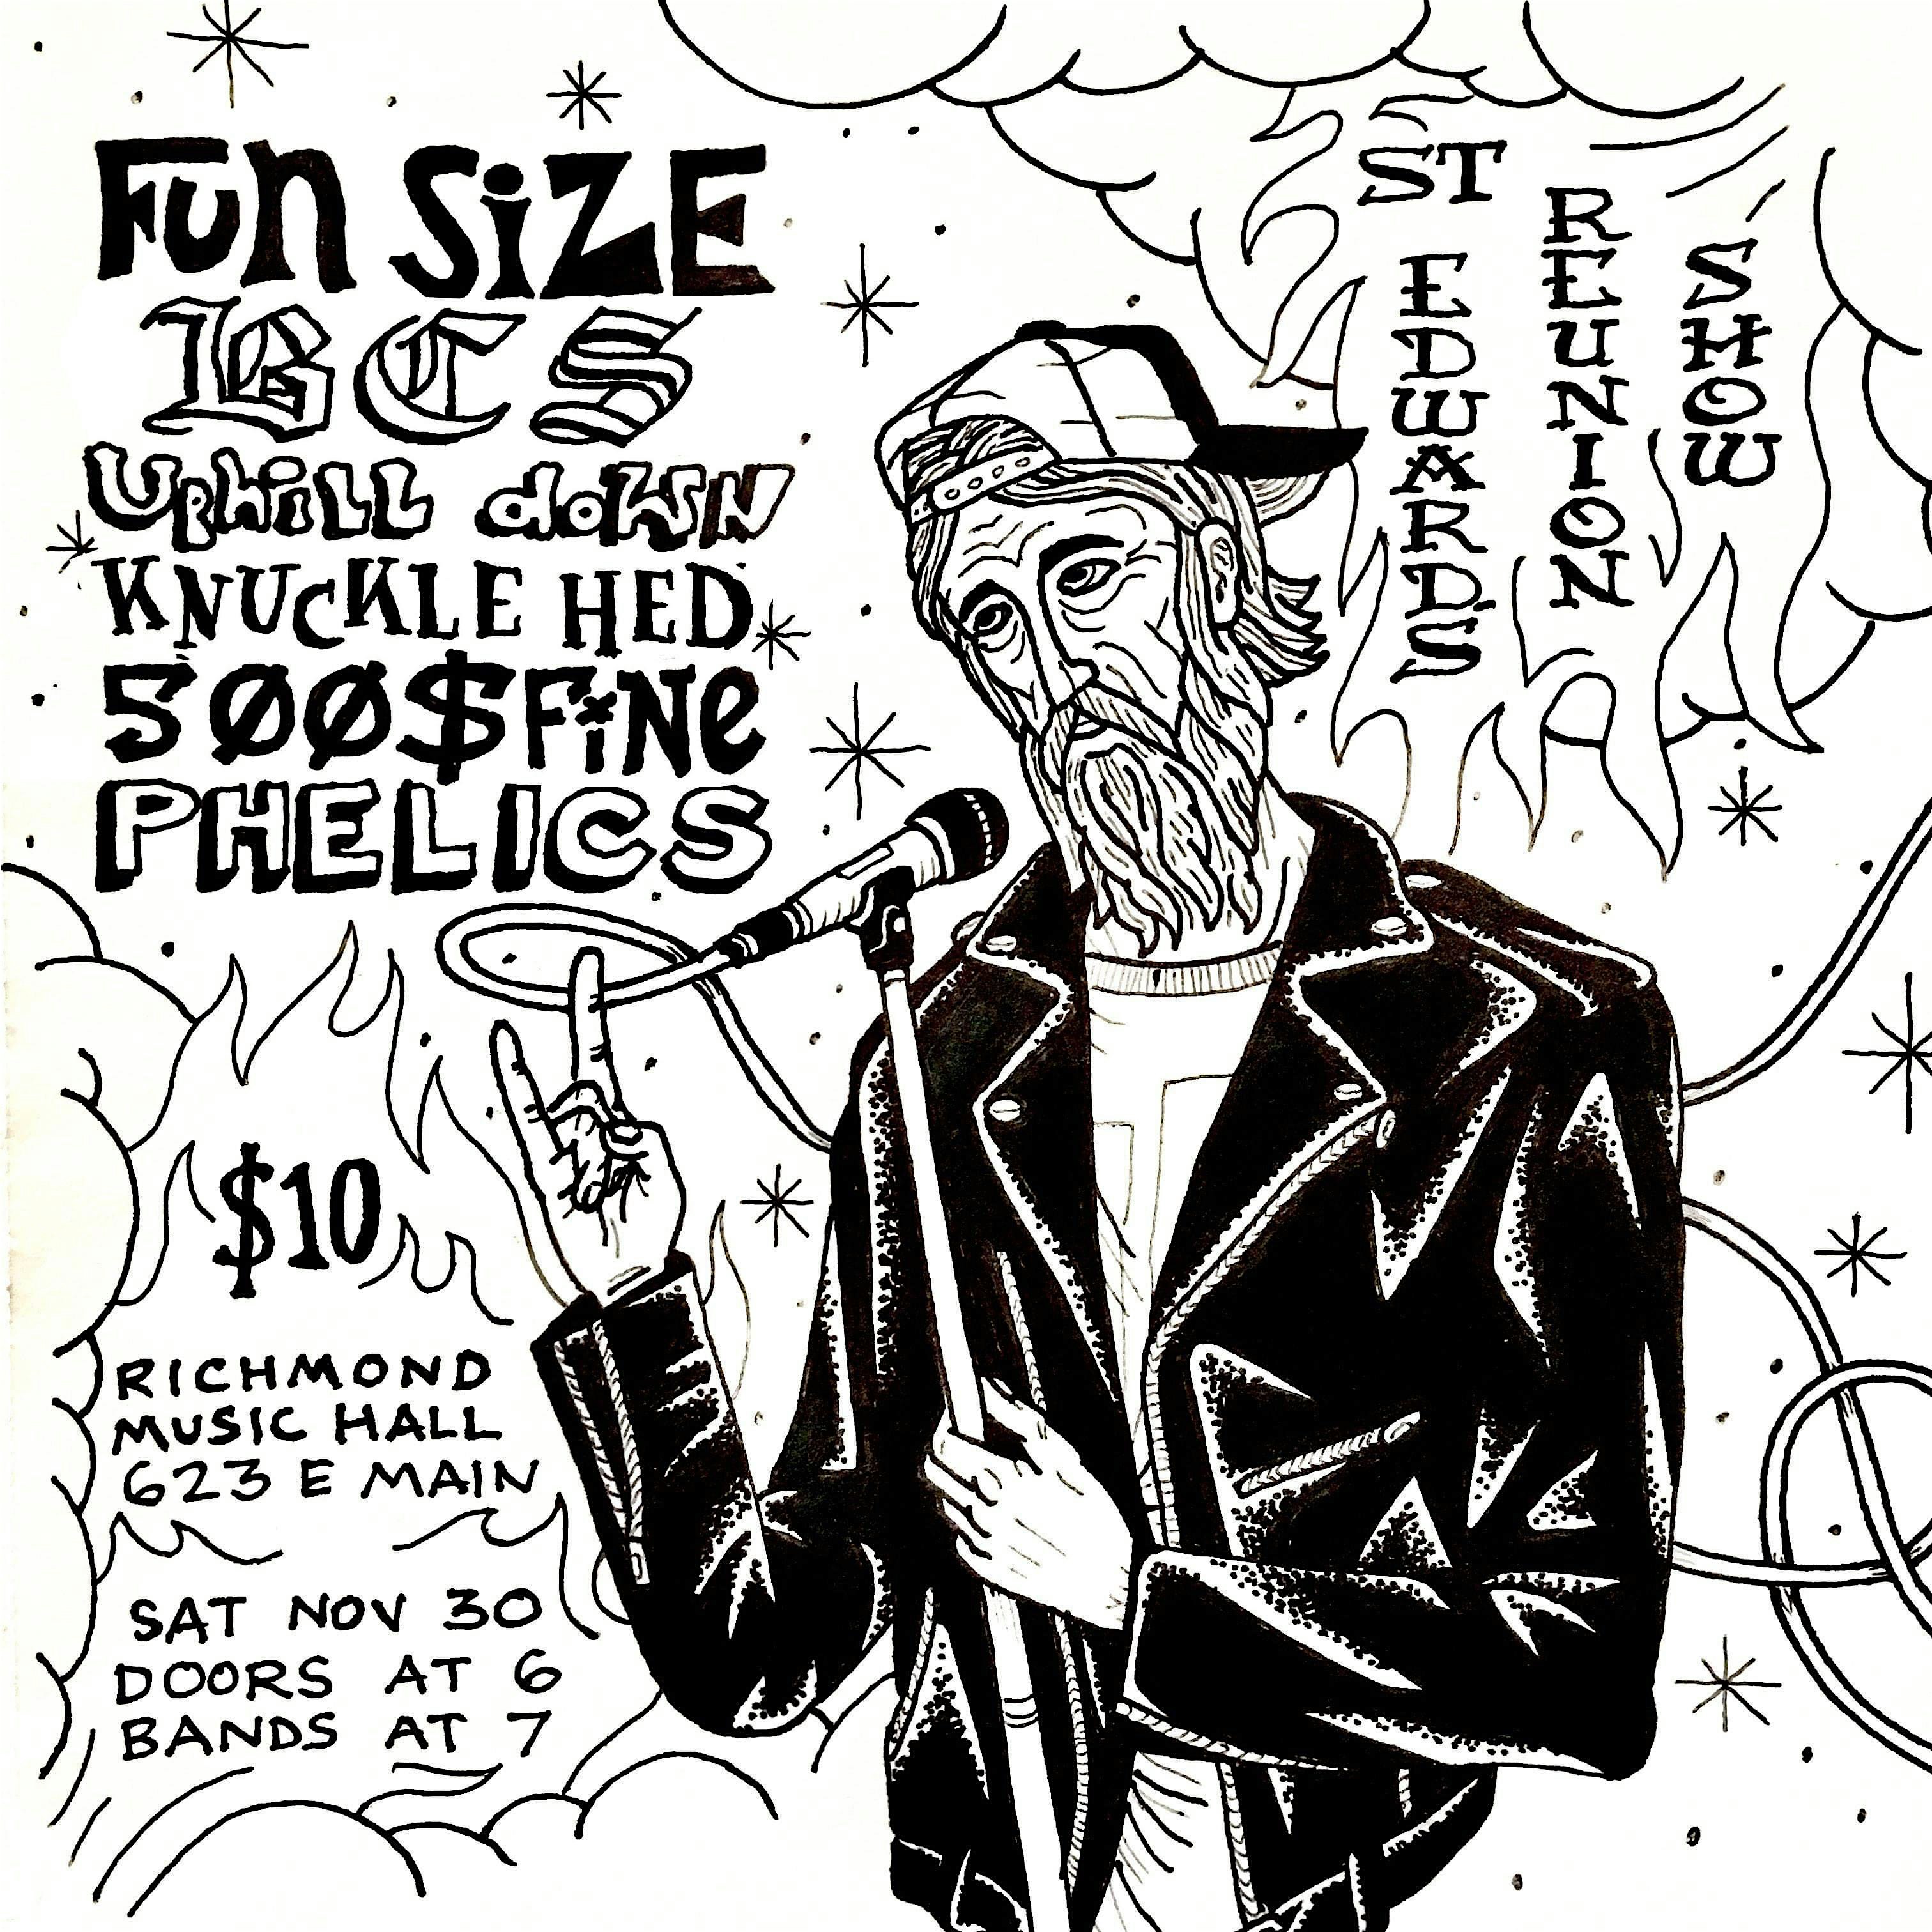 FUN SiZE
BCS
UPHiLL doWN
KNUCKLE HED
5ØØ$FiNe
PHELICS
ST EDWARDS
REUNION
SHOW
$10
RICHMOND
MUSIC HALL
623 E MAIN
SAT NOV 30
DOORS AT 6
BANDS AT 7